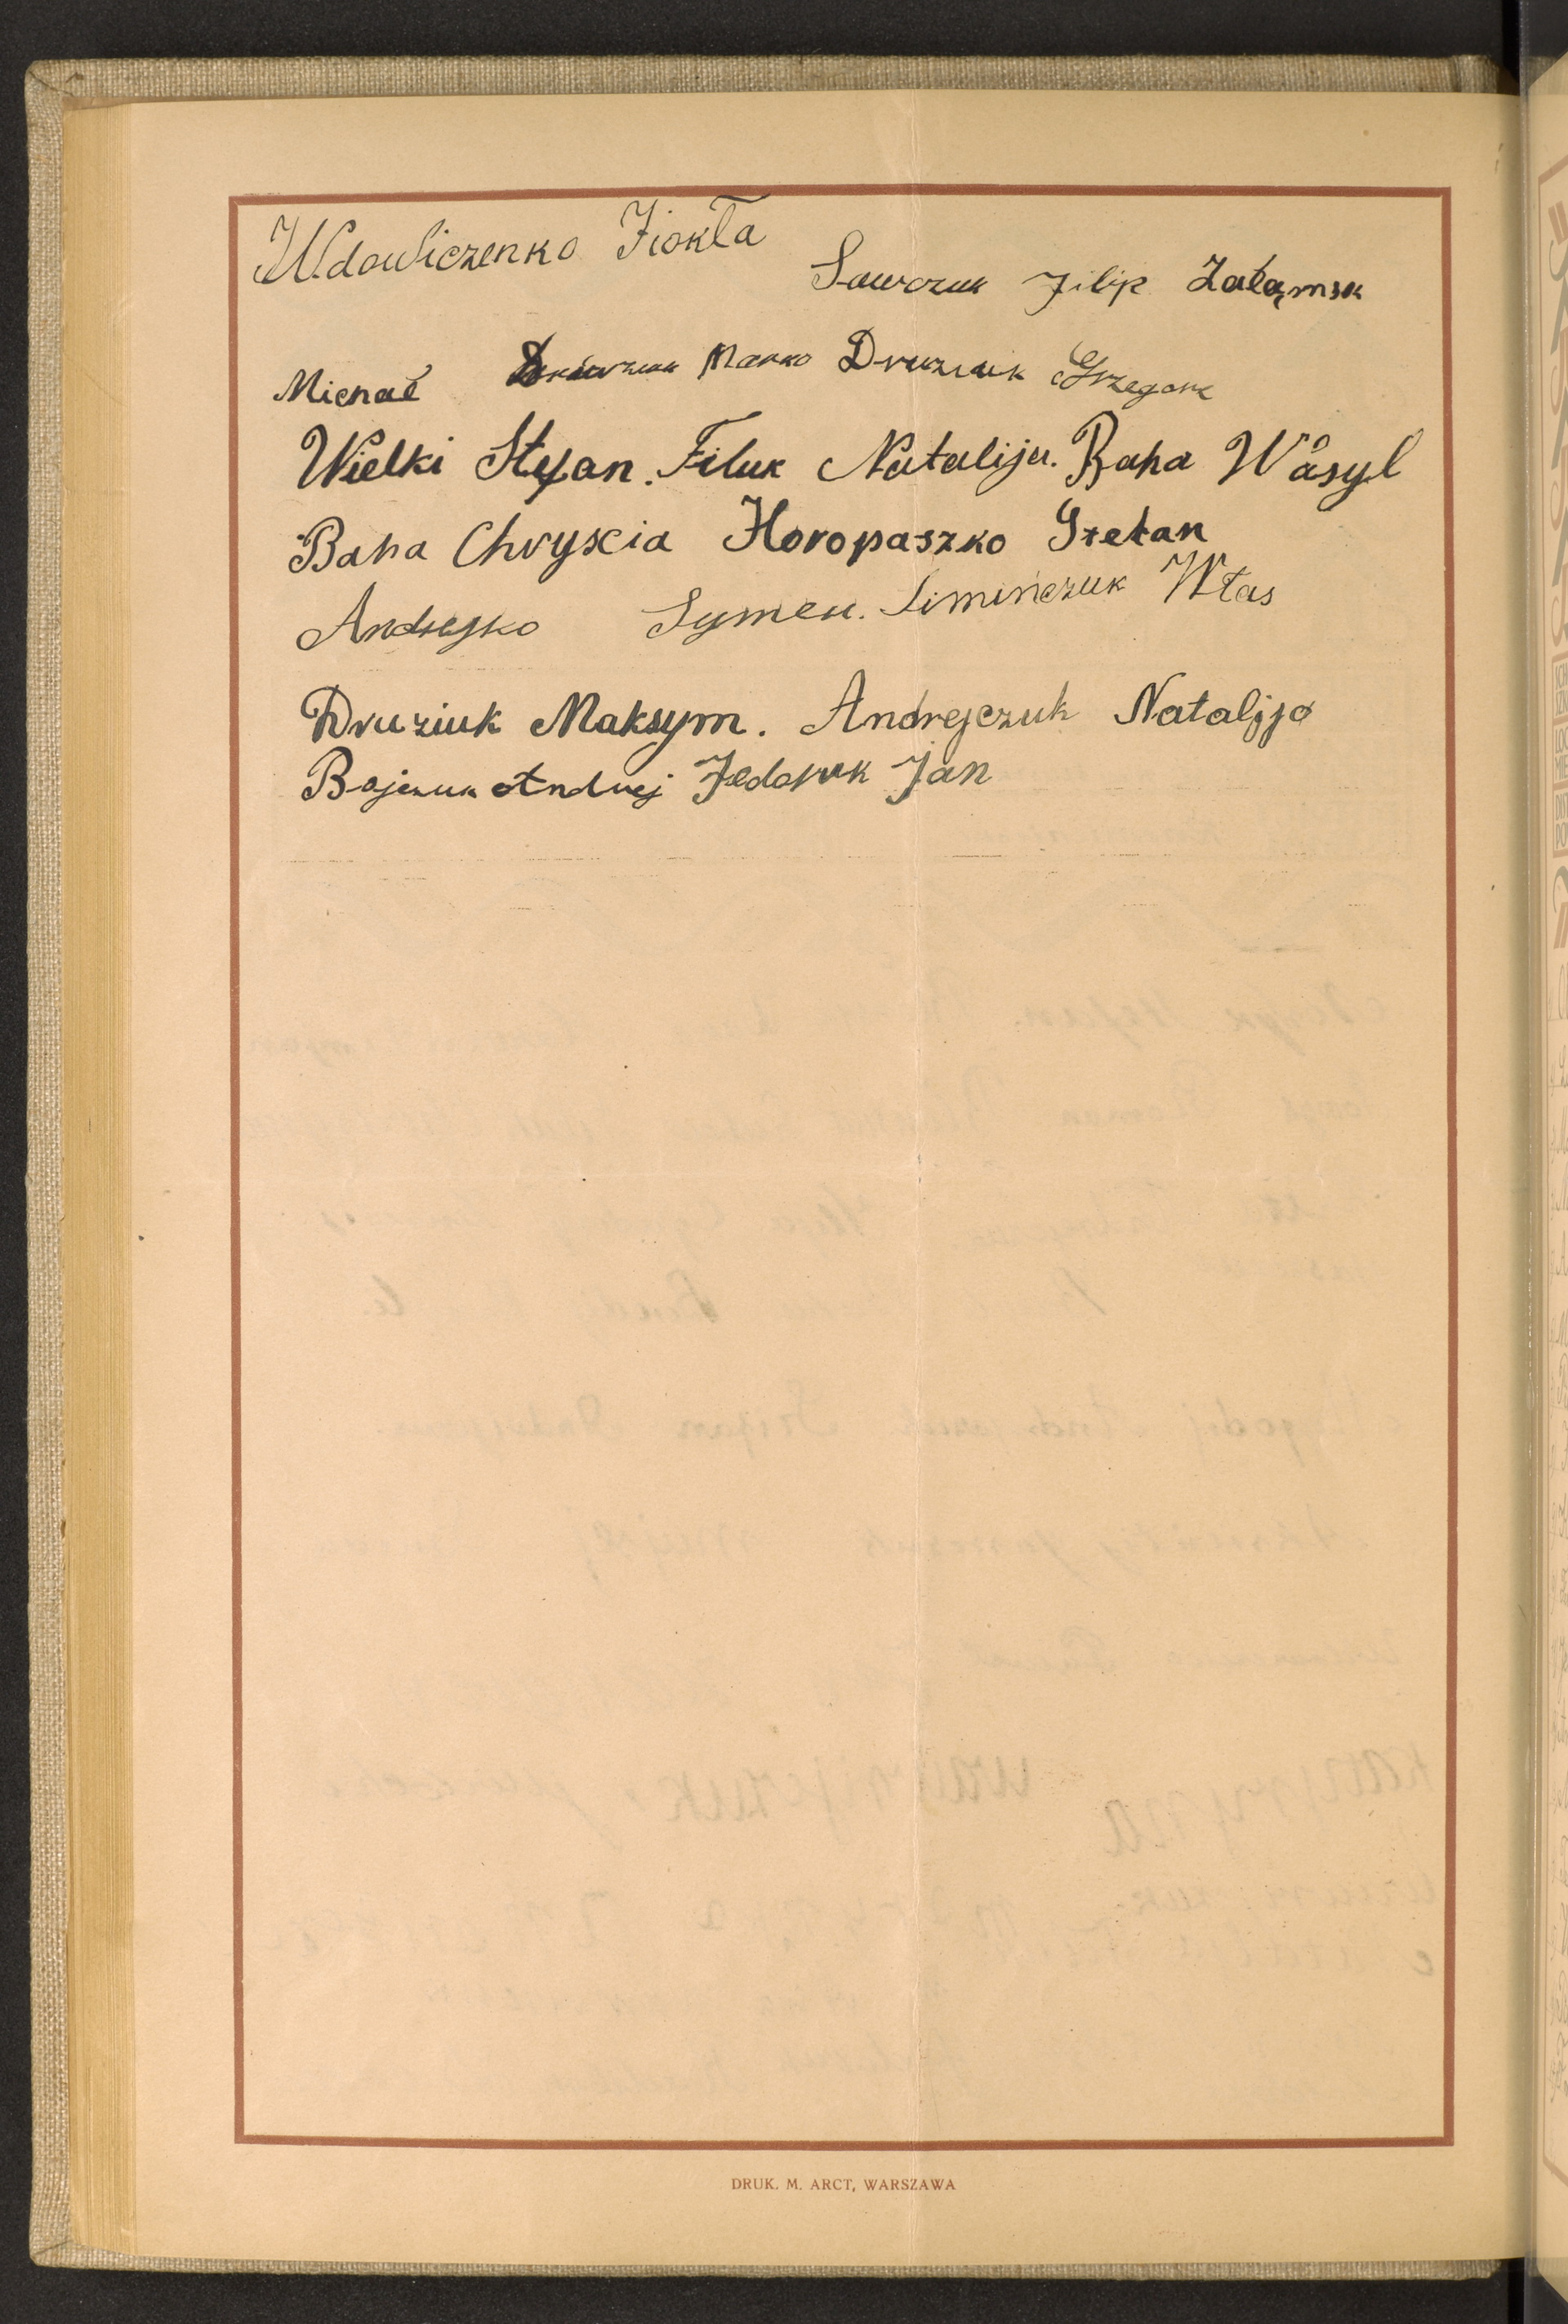 Wdowiczenko Fiokła
Sawczuk Filip Załąmsk
Michał Marko Druziuk Grzegorz
Wielki Stefan. Filuk Natalija. Baha Wasyl
Baha Chryscia Horopaszko Stefan
Andrejko Symen. Siminczuk Własˈ
Druziuk Maksym. Andrejczuk Natalija
Bojczuk Andrej Fedoruk Jan
DRUK. M. ARCT, WARSZAWA